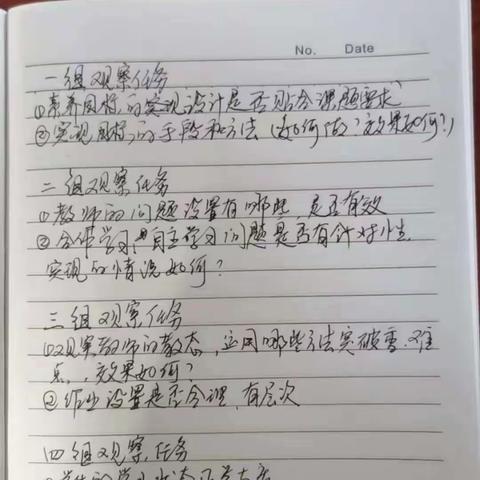 No. Date
一组观察任务
①素养目标的实现设计是否贴合课题要求
②实现目标的手段和方法(如何做?效果如何?)
二组观察任务
①教师的问题设置有哪些,是否有效
②合作学习与自主学习问题是否有针对性
实现的情况如何?
三组观察任务
①观察教师的教态,运用哪些方法突破重难
点,效果如何?
②作业设置是否合理,有层次
四组观察任务